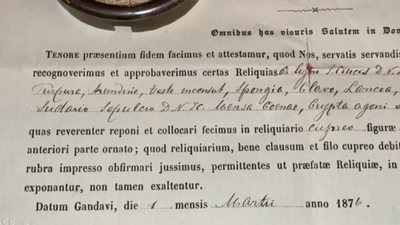 Omnibus has visuris Salutem in Dom
TENORE præsentium fidem facimus et attestamur, quod Nos, servatis servandi
recognoverimus et approbaverimus certas Reliquias Ex ligno S. Crucis D. N.
Purpura, Arundine, Veste inconsut, Spongia, Clavo, Lancea,
Sudario Sepulcro D. N. JC Mensa Coenae, Crypta agoni
quas reverenter reponi et collocari fecimus in reliquiario cupreo figuræ
anteriori parte ornato; quod reliquiarium, bene clausum et filo cupreo debit
rubra impresso obfirmari jussimus, permittentes ut præfatæ Reliquiæ, in
exponantur, non tamen exaltentur.
Datum Gandavi, die 1 mensis Martii anno 1876.